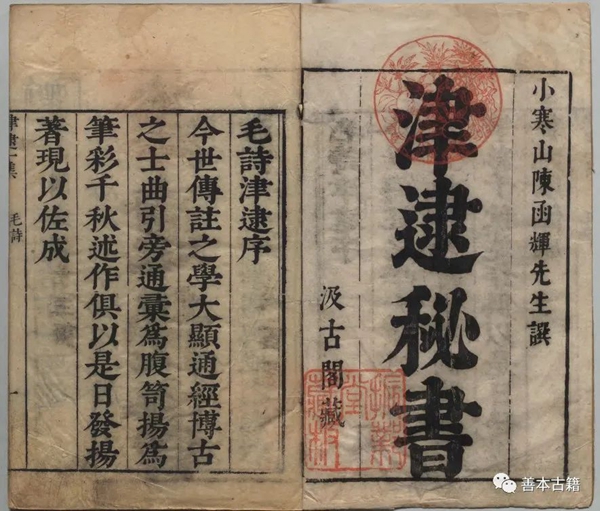 小寒山陳函輝先生譔
津逮秘書
汲古閣藏
毛詩津逮序
今世傳註之學大顯通經博古
之士曲引旁通彙為腹笥揚為
筆彩千秋述作俱以是日發揚
著現以佐成
毛詩
一
善本古籍